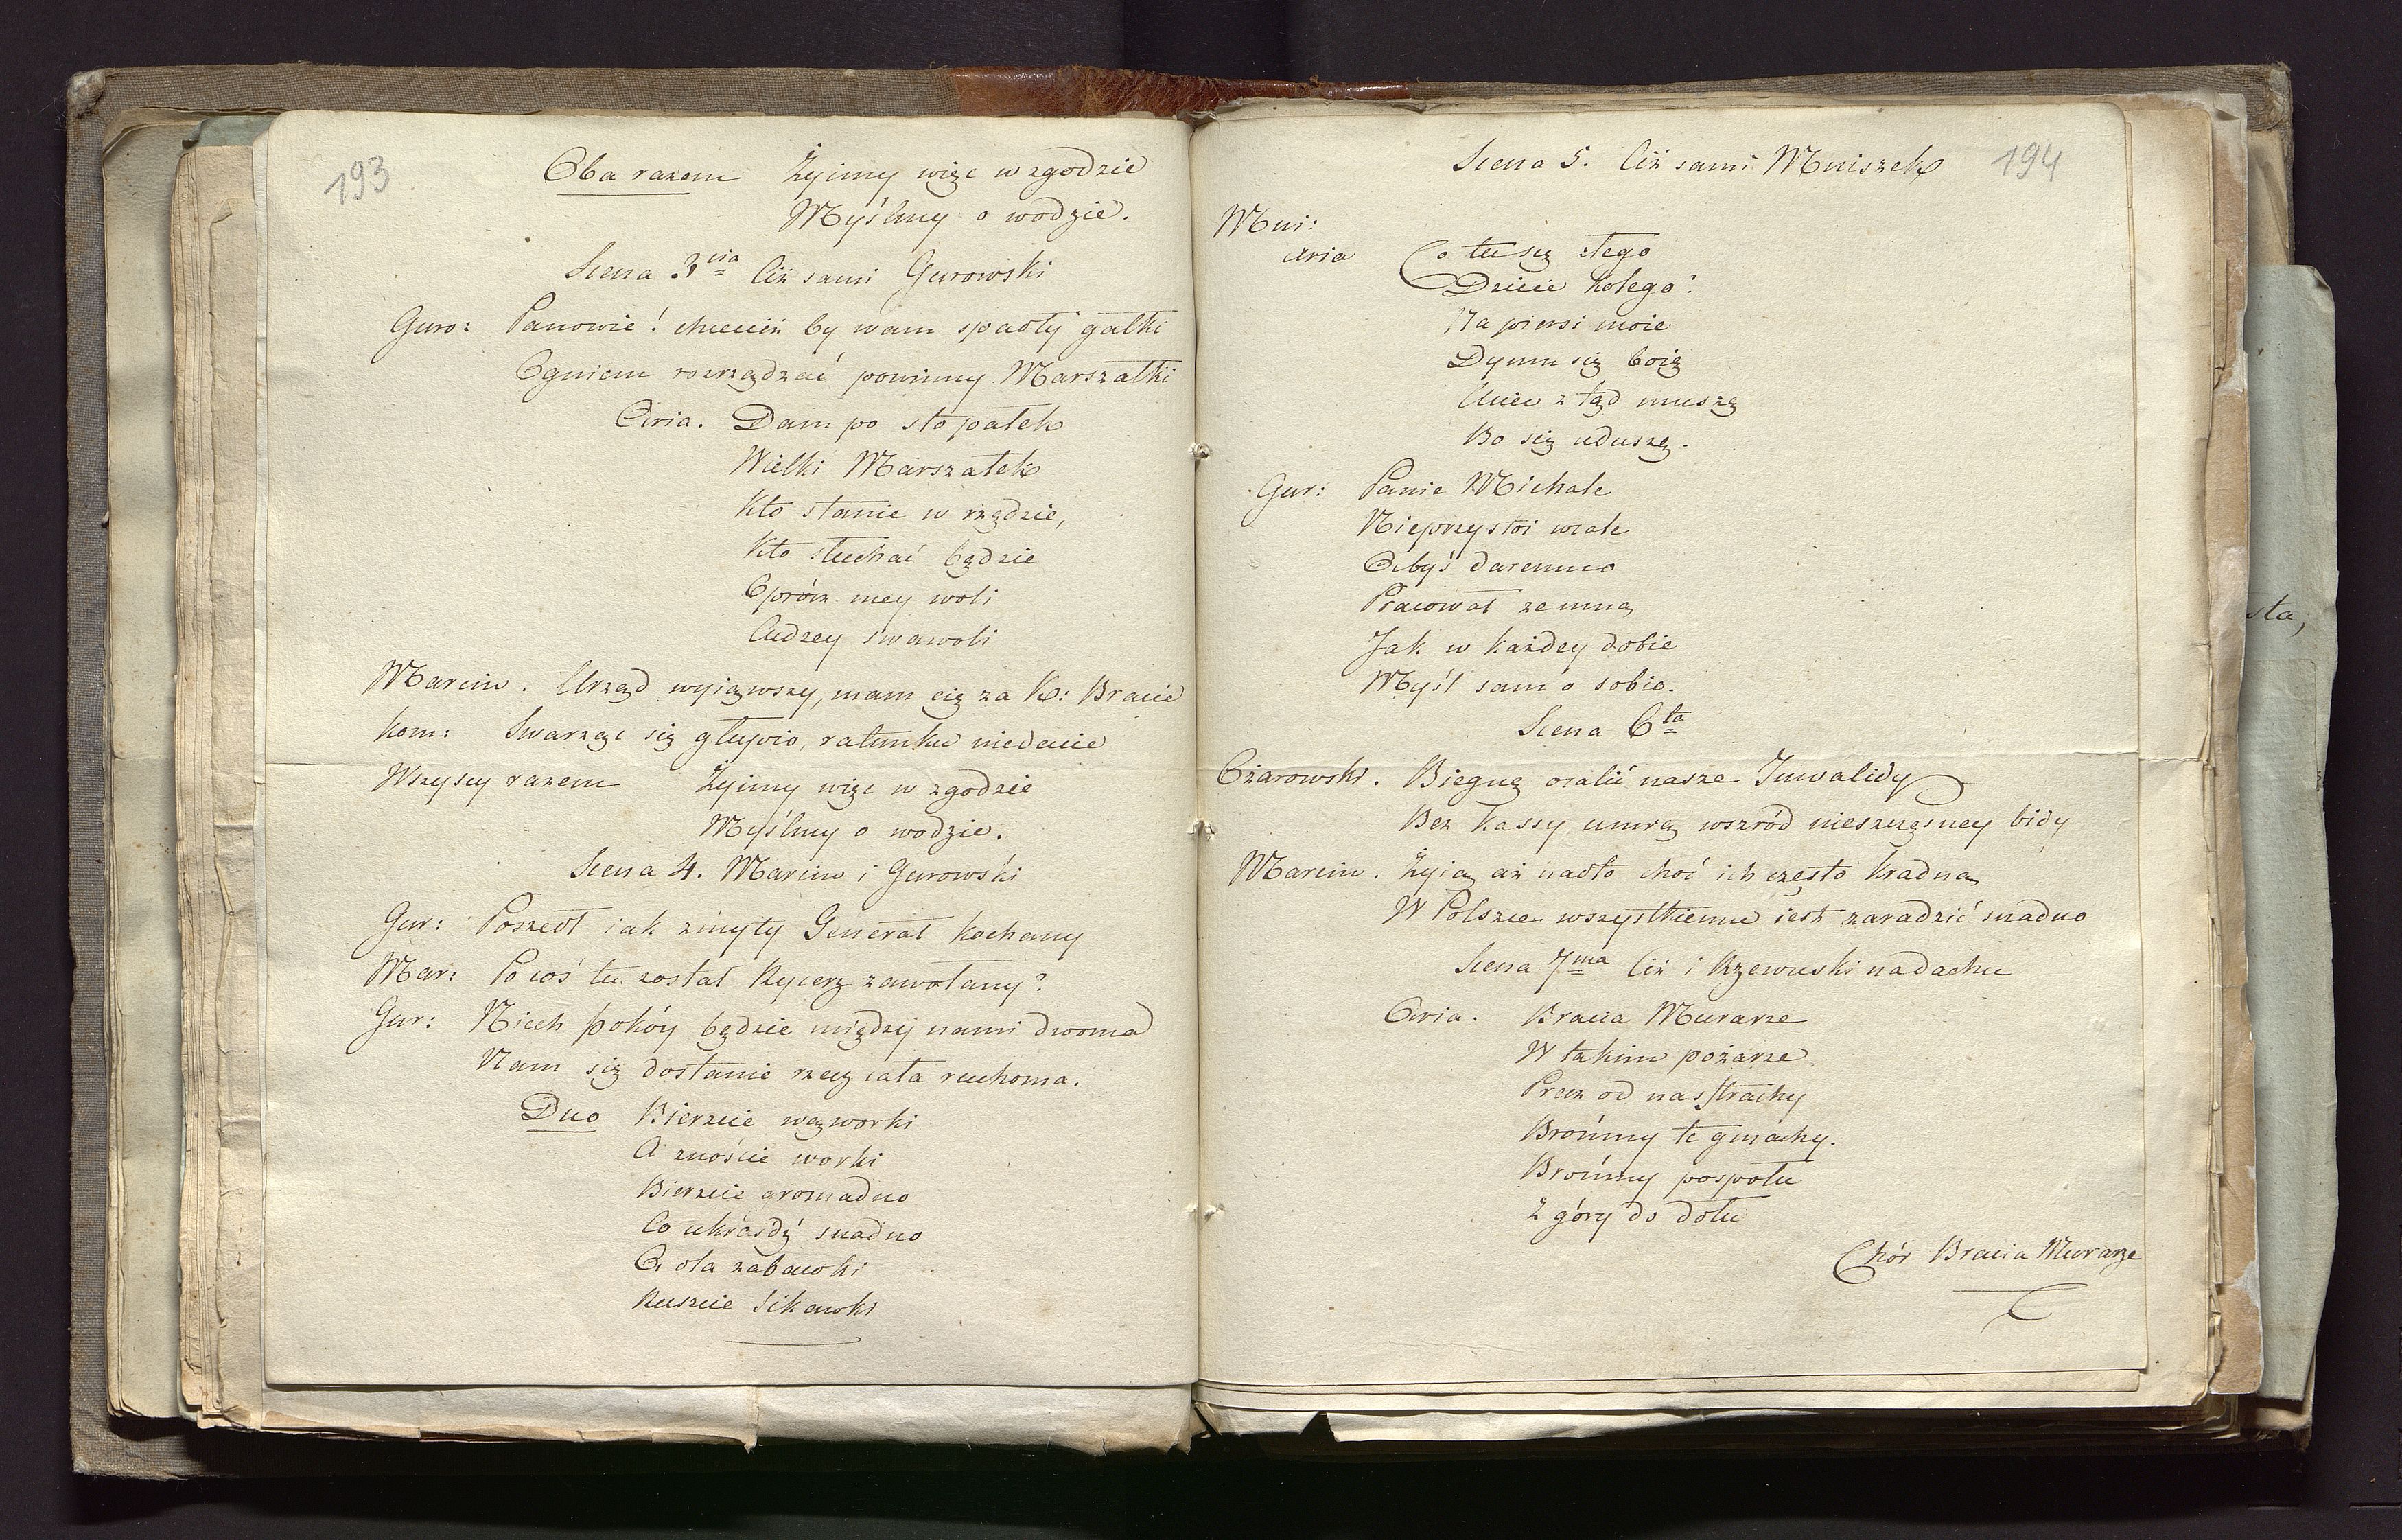 193
Oba razem Żyimy więc w zgodzie
Myślmy o wodzie.
Scena 3cia Ciż sami Gurowski
Guro: Panowie! chceciż by wam spadły gałki
Ogniem rozrządzać powinny Marszałki
Aria. Dam po sto pałek
Wielki Marszałek
Kto stanie w rzędzie,
Kto słuchać będzie
Oprócz mey woli
Cudzey swawoli
Marcin. Urząd wyiąwszy, mam cię za K: Bracie
Kom: Swarząc się głupio, ratunku niedacie
Wszyscy razem Żyimy więc w zgodzie
Myślmy o wodzie.
Scena 4. Marcin i Gurowski
Gur: Poszedł iak zmyty Generał kochany
Mar: Pocoś tu został Rycerz zawołany?
Gur: Niech pokóy będzie między nami dwoma
Nam się dostanie rzecz cała ruchoma.
Duo Bierzcie wązworki
A znoście worki
Bierzcie gromadno
Co ukraśdź snadno
A dla zabawki
Ruszcie sikawki
194
Scena 5. Ciż sami Mniszek
Mni:
aria Co tu się złego
Dzieie kolego!
Na piersi moie
Dymu się boię
Uciec z tąd muszę
Bo się uduszę.
Gur: Panie Michale
Nieprzystoi wcale
Abyś daremno
Pracował ze mną
Jak w każdey dobie
Myśl sam o sobie.
Scena 6ta
Ożarowski. Biegnę ocalić nasze Inwalidy
Bez kassy umrą wszród nieszczęsney bidy
Marcin. Żyią aż nadto choć ich często kradną
W Polszcze wszystkiemu iest zaradzić snadno
Scena 7ma Ciż i Rzewuski na dachu
Aria. Bracia Murarze
W takim pożarze
Precz od nas strachy
Brońmy te gmachy.
Brońmy pospołu
Z góry do dołu
Chór Bracia Murarze
sta,